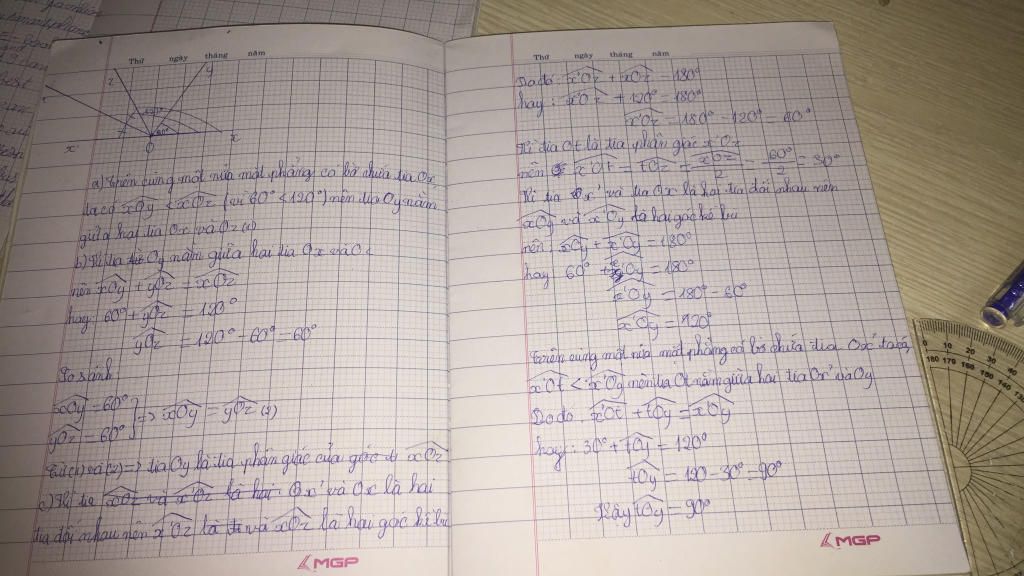 Thứ ngày tháng năm
z y
x' O x
a) Trên cùng một nửa mặt phẳng có bờ chứa tia Ox,
ta có xOy < xOz (vì 60° < 120°) nên tia Oy nằm
giữa hai tia Ox và Oz (1)
b) Vì tia Oy nằm giữa hai tia Ox và O
nên xOy + yOz = xOz
hay: 60° + yOz = 120°
yOz = 120° - 60° = 60°
So sánh
xOy = 60°
yOz = 60° } => xOy = yOz (2)
Từ (1) và (2) => tia Oy là tia phân giác của góc xOz
c) Vì tia Ox' và Ox là hai
tia đối nhau nên x'Oz và xOz là hai góc kề bù
MGP
Thứ ngày tháng năm
Do đó: x'Oz + xOz = 180°
hay: x'Oz + 120° = 180°
x'Oz = 180° - 120° = 60°
Vì tia Ot là tia phân giác x'Oz
nên x'Ot = tOz = x'Oz/2 = 60°/2 = 30°
Vì tia Ox' và tia Ox là hai tia đối nhau nên
xOy và x'Oy là hai góc kề bù
nên: xOy + x'Oy = 180°
hay 60° + x'Oy = 180°
x'Oy = 180° - 60°
x'Oy = 120°
Trên cùng một nửa mặt phẳng có bờ chứa tia Ox' ta có,
x'Ot < x'Oy nên tia Ot nằm giữa hai tia Ox' và Oy
Do đó: x'Ot + tOy = x'Oy
hay: 30° + tOy = 120°
tOy = 120 - 30° = 90°
Vậy tOy = 90°
MGP
0 10 20 30
180 170 160 150 140 130